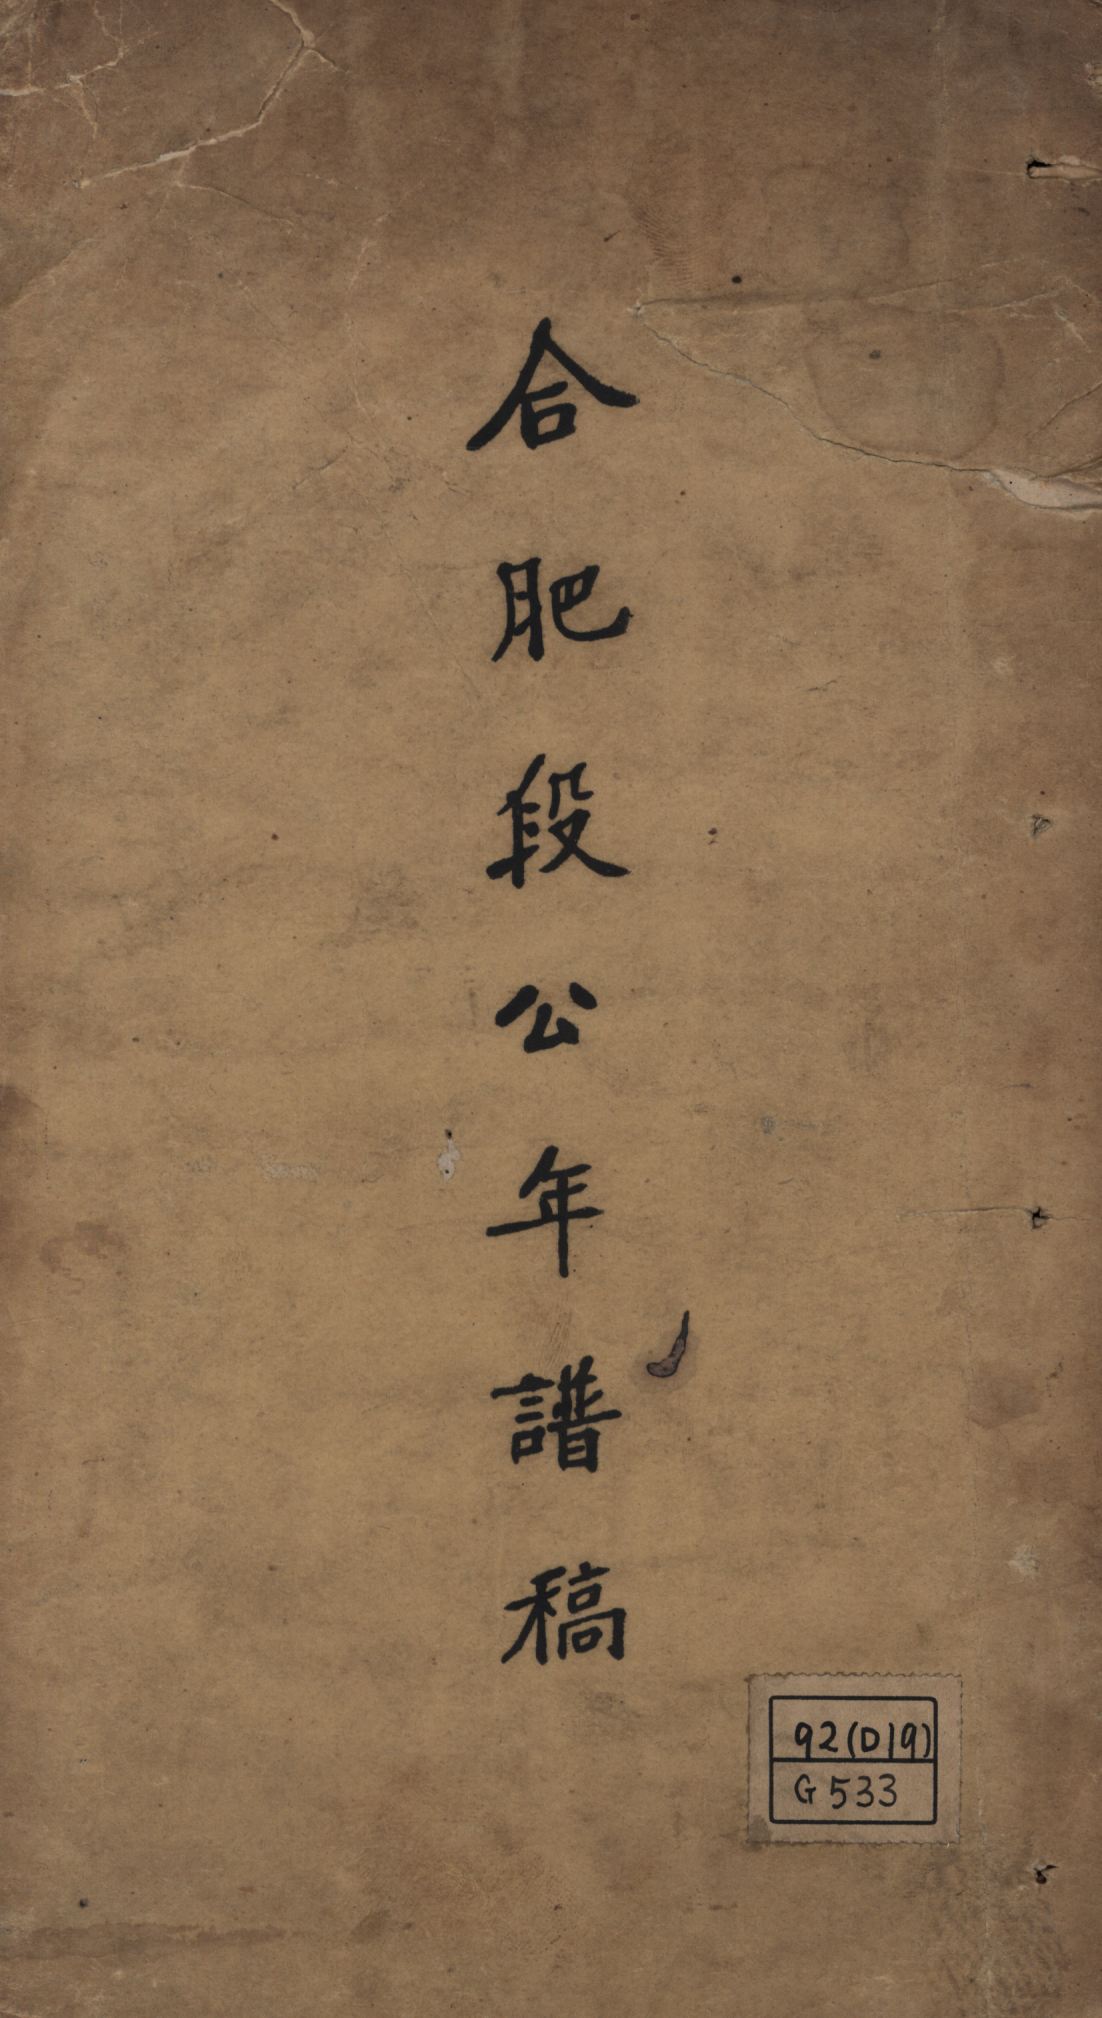 合肥段公年譜稿
92(D19)
G533